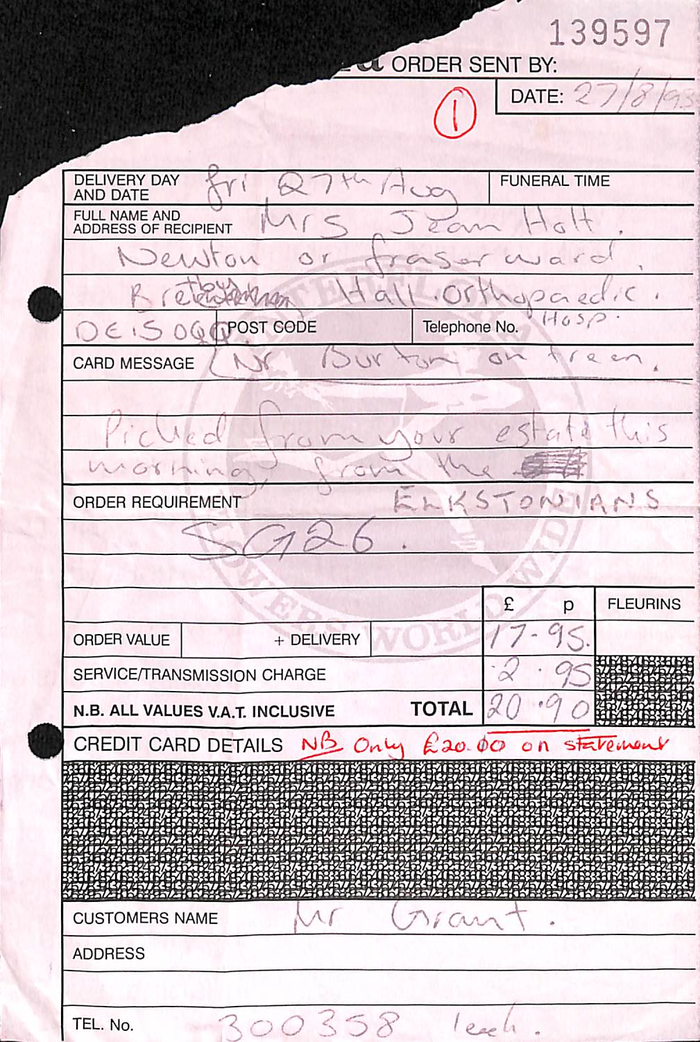 139597
ORDER SENT BY:
DATE: 27/8/93
1
DELIVERY DAY AND DATE Fri 27th Aug FUNERAL TIME
FULL NAME AND
ADDRESS OF RECIPIENT Mrs Jean Holt.
Newton or fraser ward.
Hall Orthopaedic.
Hosp.
POST CODE Telephone No.
CARD MESSAGE (Nr Burton on Treen.
Picked from your estate this
morning, from the
ELKSTONIANS
ORDER REQUIREMENT
SG26.
INTERFLORA
FLOWERS WORLDWIDE
£ p FLEURINS
ORDER VALUE + DELIVERY 17-95.
SERVICE/TRANSMISSION CHARGE 2.95
N.B. ALL VALUES V.A.T. INCLUSIVE TOTAL 20.90
CREDIT CARD DETAILS NB Only £20.00 on statement
CUSTOMERS NAME Mr Grant.
ADDRESS
TEL. No. 300358 leek.